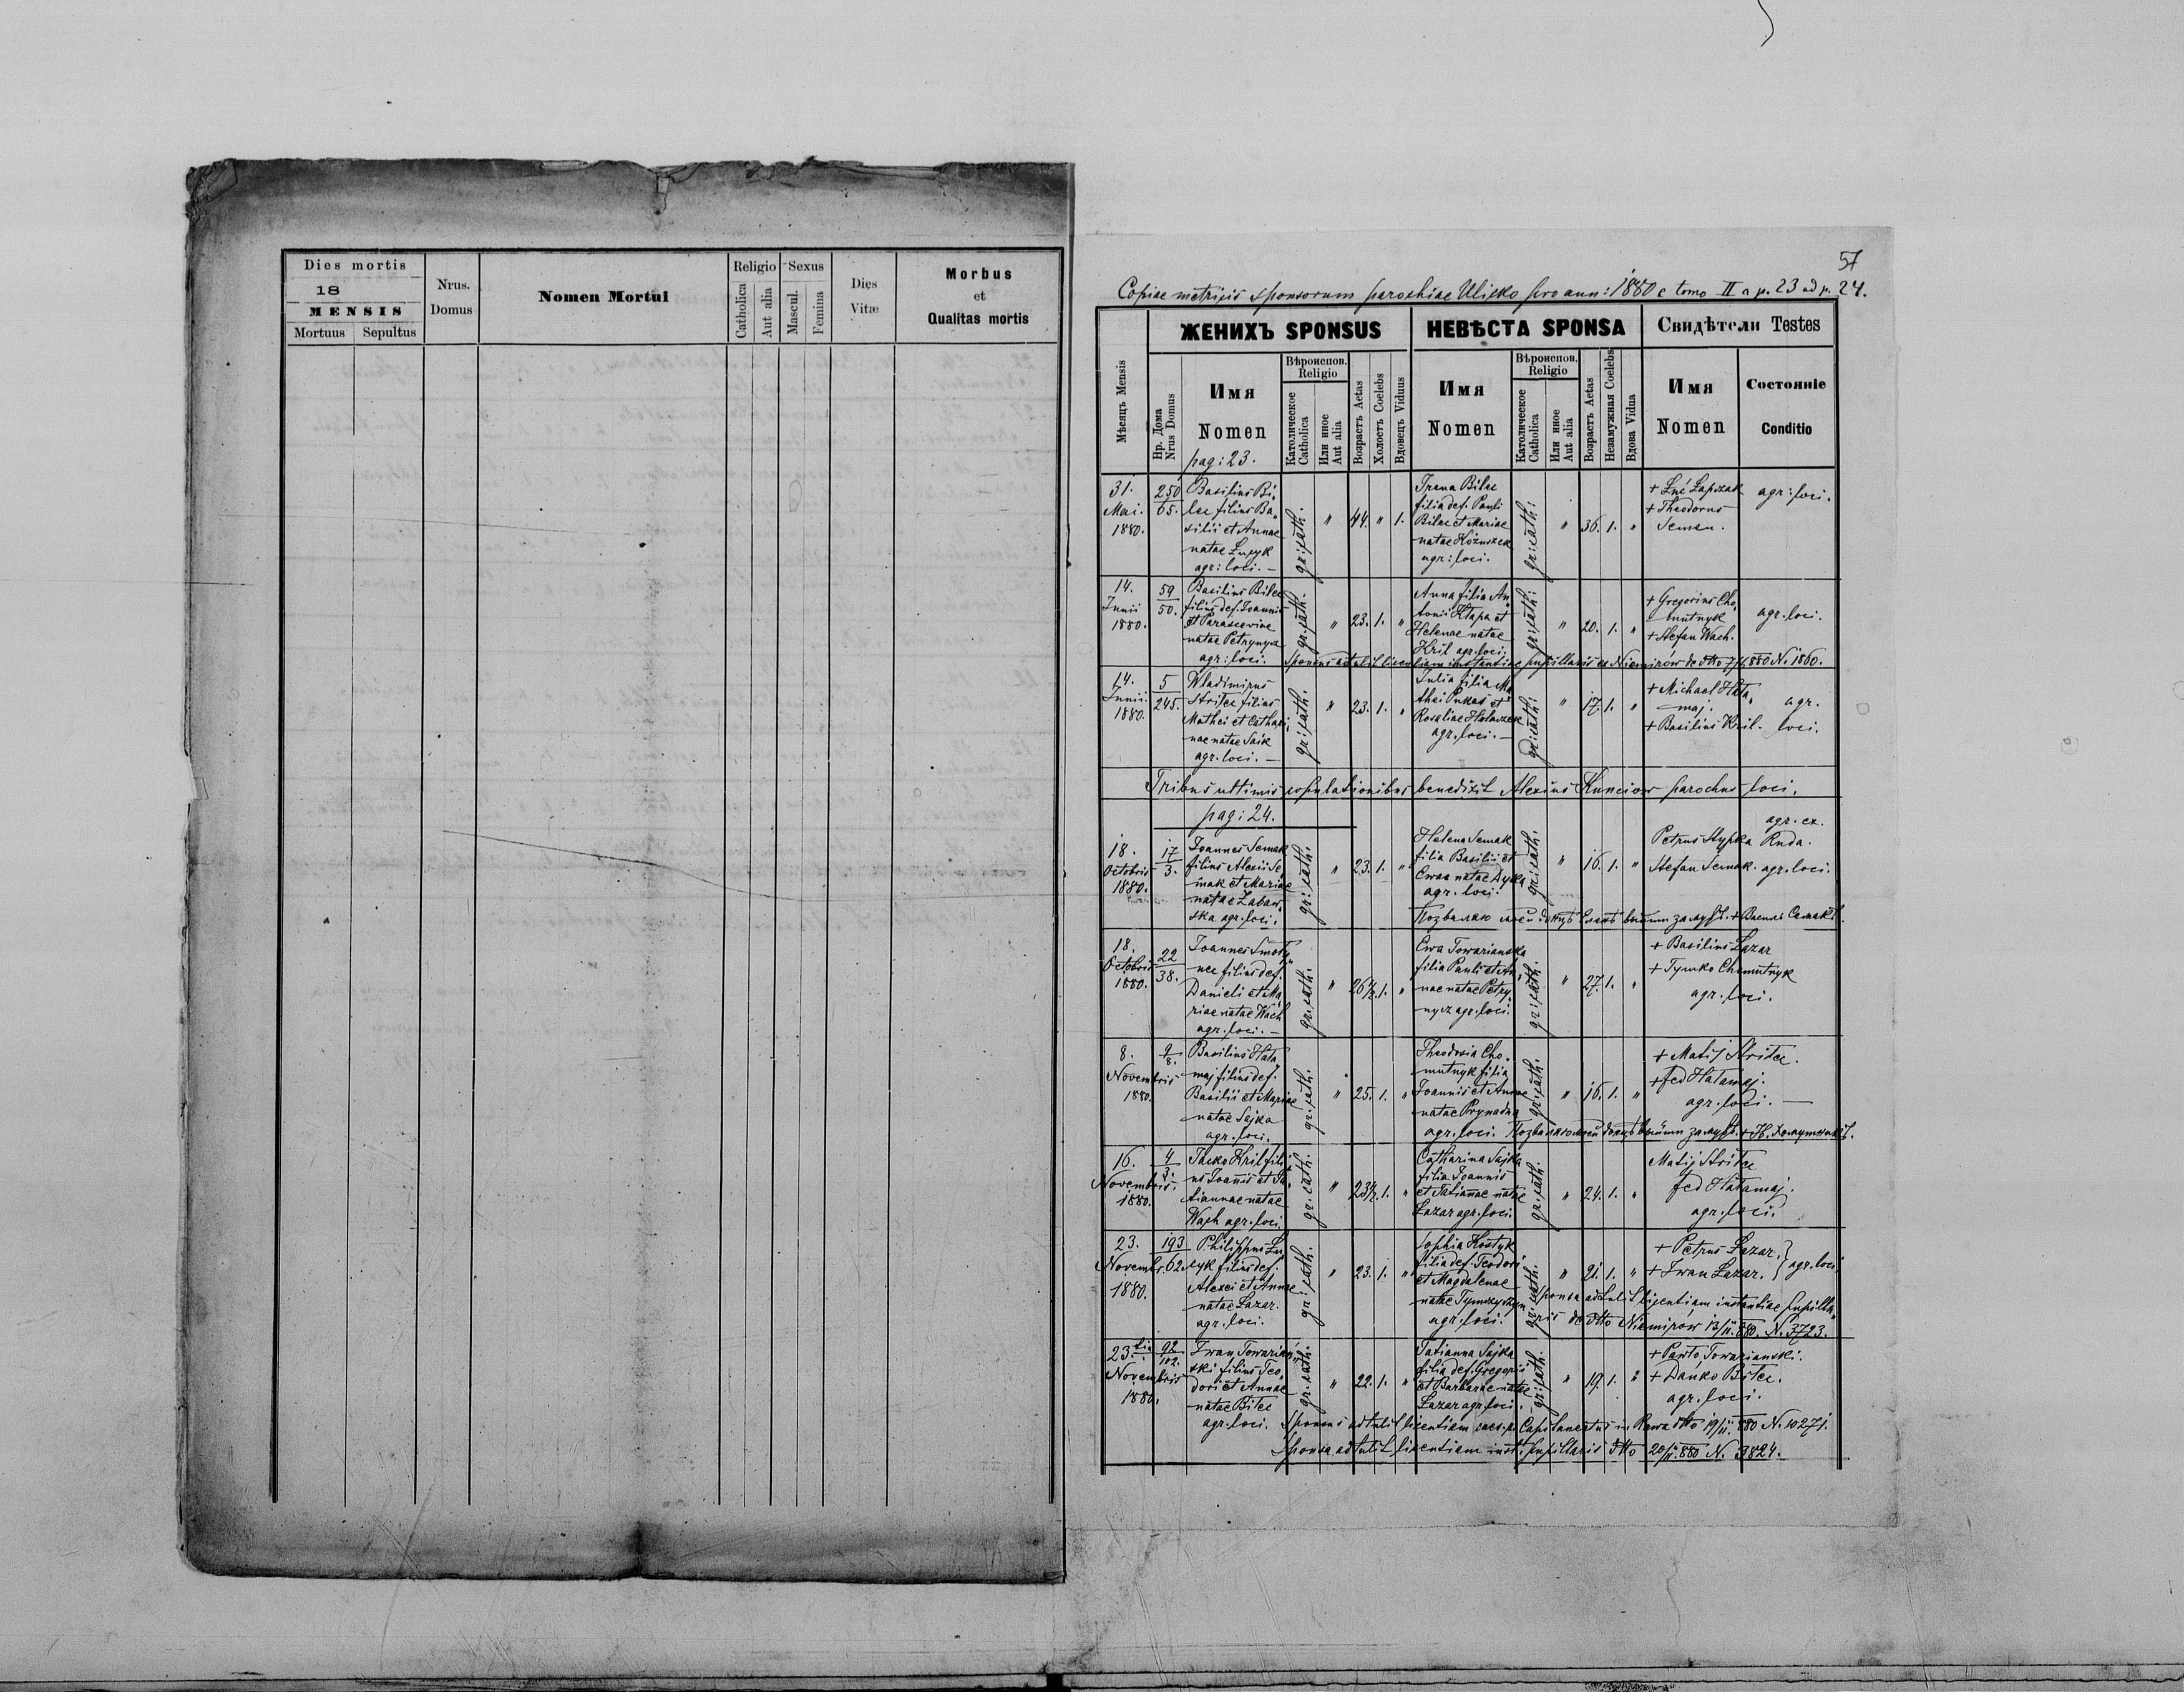 Dies mortis
18
MENSIS
Mortuus Sepultus
Nrus.
Domus
Nomen Mortui
Religio
Catholica
Aut alia
Sexus
Mascul.
Femina
Dies
Vitæ
Morbus
et
Qualitas mortis
57
Copiae metricis sponsorum parochiae Ulicko pro ann: 1880 e tomo II a p. 23 ad p. 24.
ЖЕНИХЪ SPONSUS
НЕВѢСТА SPONSA
Свидѣтели Testes
Мѣсяцъ Mensis
Нр. Дома
Nrus Domus
Имя
Nomen
Вѣроиспов.
Religio
Католическое
Catholica
Или иное
Aut alia
Возрастъ Aetas
Холостъ Coelebs
Вдовецъ Viduus
Имя
Nomen
Вѣроиспов.
Religio
Католическое
Catholica
Или иное
Aut alia
Возрастъ Aetas
Незамужная Coelebs
Вдова Vidua
Имя
Nomen
Состояніе
Conditio
pag: 23.
31.
Mai.
1880.
250
65.
Basilius Bi„
lec filius Ba„
silii et Annae
natae
agr: loci. –
gr: cath.
" 44. " 1.
Irena Bilec
filia def. Pauli
Bilec et Mariae
natae Kożuszek
agr: loci.
gr: cath:
" 36. 1. "
+ Łuć Łapszak
+ Theodorus
Seman.
agr: loci.
14.
Junii
1880.
59
50.
Basilius Bilec
filius def. Joannis
et Parascevine
natae Petrynycz
agr: loci.
gr: cath.
" 23. 1. "
Anna filia An„
tonii Hapa et
Helenae natae
Kril agr. loci.
gr: cath:
" 20. 1. "
+ Gregorius Cho„
mutnyk
+ Stefan Wach.
agr. loci.
Sponsus adtulit licentiam instantiae pupillaris ex Niemirów de dtto 7/4. 880 N. 1860.
14.
Junii
1880.
5
245.
Wladimirus
Stritce filius
Mathei et Cathari„
nae natae Saik
agr. loci. –
gr: cath:
" 23. 1. "
Julia filia Ma„
thei Pukas et
Rosaliae
agr. loci. –
gr: cath:
" 17. 1. "
+ Michael Hata„
maj.
+ Basilius Kril.
agr.
loci.
Tribus ultimis copulationibus benedixit Alexius Kunciow parochus loci.
pag: 24.
18.
Octobris
1880.
17
3.
Joannes Semak
filius Alexii Se„
mak et Mariae
natae Zabaw„
ska agr. loci.
gr: cath.
" 23. 1. "
Helena Semak
filia Basilii et
Ewae natae Dyka
agr. loci.
gr: cath.
" 16. 1. "
Petrus Stypka
Stefan Semak.
agr. ex.
Ruda.
agr. loci.
Позваляю моей донцѣ Еленѣ выйти замужъ. + Василь Семакъ.
18.
Octobris
1880.
22
38.
Joannes Smoty„
nec filius def.
Danieli et Ma„
riae natae Wach
agr. loci. –
gr. cath.
" 26 1/2. 1. "
Ewa Towarianska
filia Pauli et An„
nae natae Petry„
nycz agr. loci.
gr: cath.
" 27. 1. "
+ Basilius Łazar
+ Tymko Chomutnyk
agr. loci.
8.
Novembris
1880.
9
8.
Basilius Hata„
maj filius def.
Basilii et Mariae
natae Sajka
agr. loci.
gr. cath.
" 25. 1. "
Theodosia Cho„
mutnyk filia
Joannis et Annae
natae Prynadna
agr. loci.
gr. cath.
" 16. 1. "
+ Matij Stritce.
+ Fed Hatamaj.
agr. loci. —
Позваляю моей донцѣ выйти замужъ. + И. Хомутникъ.
16.
Novembris.
1880.
4
3.
Jacko Kril fili„
us Joannis et Ta„
tiannae natae
Wach agr. loci.
gr. cath.
" 23 1/2. 1. "
Catharina Sajka
filia Joannis
et Tatiannae natae
Łazar agr. loci.
gr. cath.
" 24. 1. "
Matij Stritce
Fed Hatamaj.
agr. loci.
23.
Novembr.
1880.
193
62
Philippus
filius def.
Alexei et Annae
natae Łazar.
agr. loci.
gr: cath.
" 23. 1. "
Sophia Kostyk
filia def. Teodori
et Magdalenae
natae Tymczyszyn
agr. loci.
gr: cath.
" 21. 1. "
+ Petrus Łazar.
+ Iwan Łazar.
agr. loci.
Sponsa adtulit licentiam instantiae pupilla„
ris de dtto Niemirow 13/11. 880. N. 3723.
23. tia
Novembris
1880.
92
102.
Iwan Towarian„
ski filius Teo„
dori et Annae
natae Bilec
agr. loci.
gr. cath.
" 22. 1. "
Tatianna Sajka
filia def. Gregorii
et Barbarae natae
Łazar agr. loci.
gr: cath.
" 19. 1. "
+ Pawło Towarianski.
+ Dańko Bilec.
agr. loci.
Sponsus adtulit licentiam Capitaneatus in Rawa dtto 19/11. 880 N. 10271.
Sponsa adtulit licentiam inst. pupillaris dtto 20/11. 880 N. 3824.